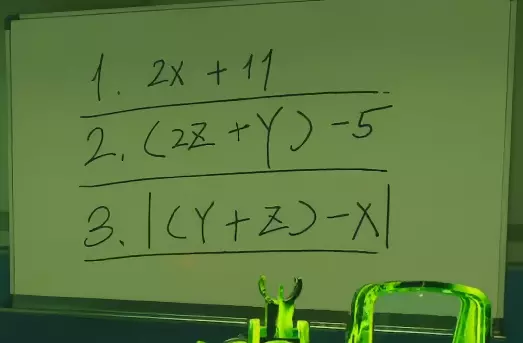 1. 2x + 11
2. (2Z + Y) - 5
3. |(Y + Z) - X|